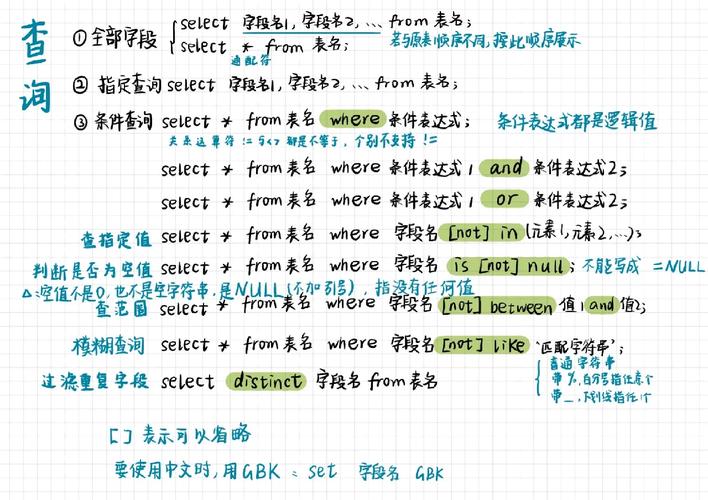 查询
① 全部字段 select 字段名1, 字段名2, … from 表名;
select * from 表名; 若与原表顺序不同, 按此顺序展示
通配符
② 指定查询 select 字段名1, 字段名2, … from 表名;
③ 条件查询 select * from 表名 where 条件表达式; 条件表达式都是逻辑值
关系运算符 != 与<> 都是不等于, 个别不支持 !=
select * from 表名 where 条件表达式1 and 条件表达式2;
select * from 表名 where 条件表达式1 or 条件表达式2;
查指定值 select * from 表名 where 字段名 [not] in (元素1, 元素2, …);
判断是否为空值 select * from 表名 where 字段名 is [not] null; 不能写成 =NULL
△:空值不是0, 也不是空字符串, 是NULL(不加引号), 指没有任何值
查范围 select * from 表名 where 字段名 [not] between 值1 and 值2;
模糊查询 select * from 表名 where 字段名 [not] like '匹配字符串';
普通字符串
带%, 百分号指任意个
带_, 下划线指任1个
过滤重复字段 select distinct 字段名 from 表名
[ ] 表示可以省略
要使用中文时, 用GBK : set 字段名 GBK